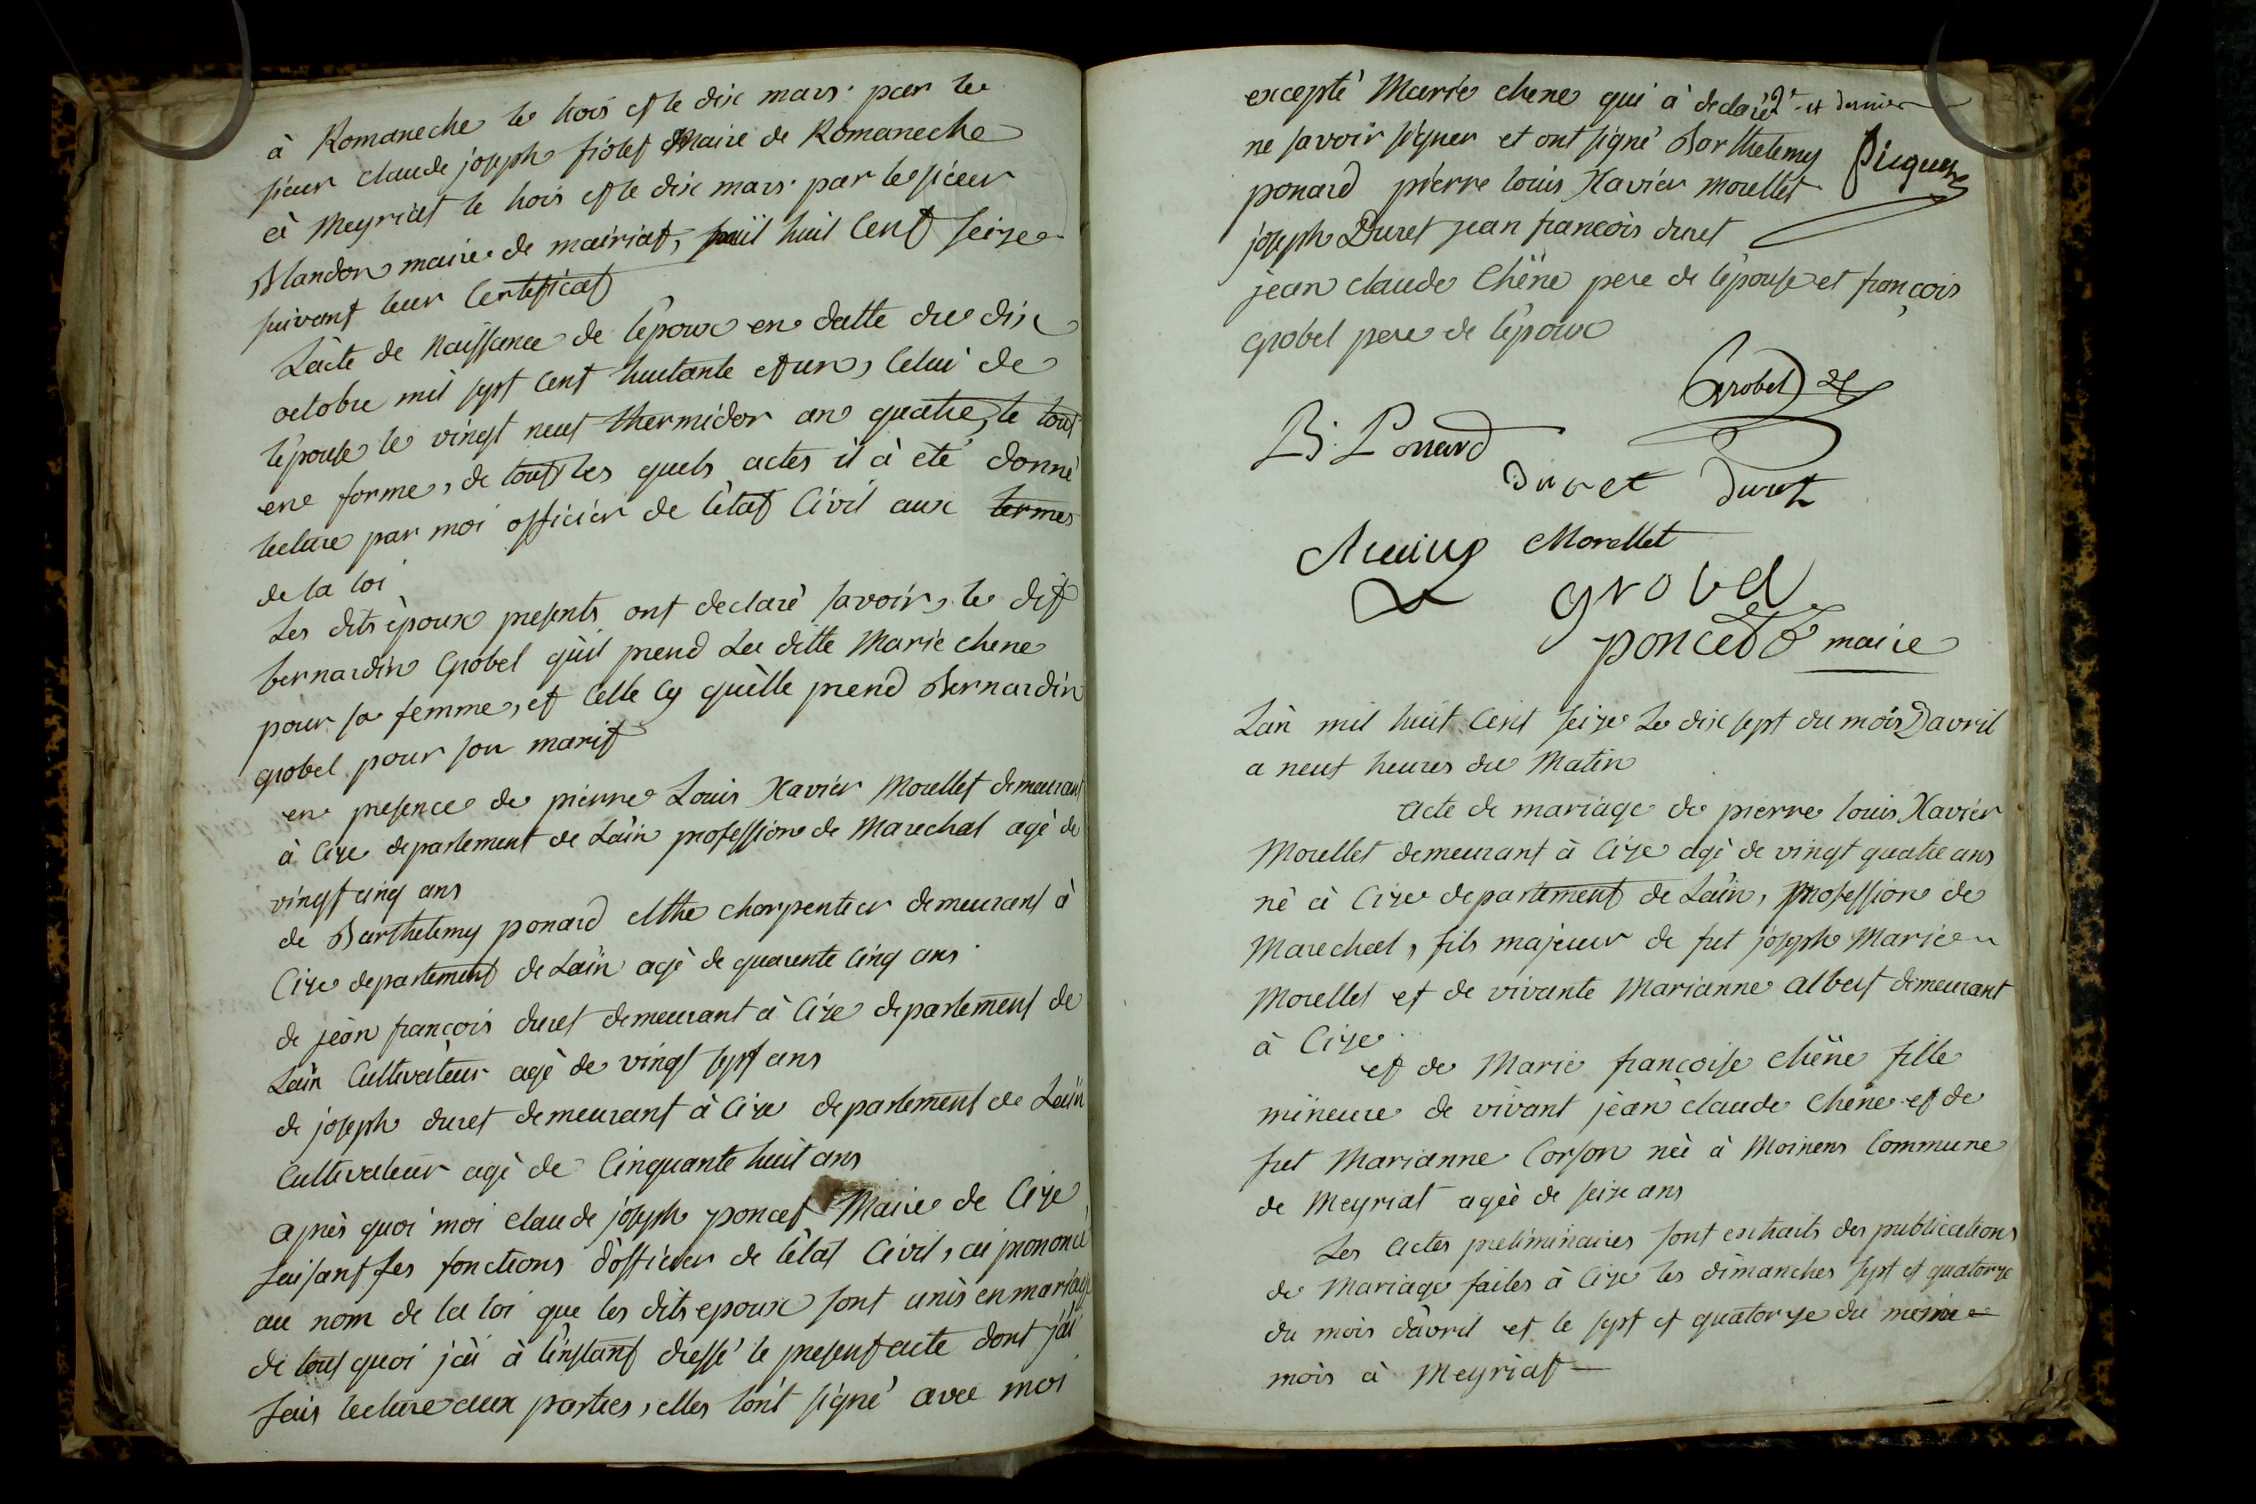 à Romaneche le trois et le dix mars par le
sieur claude joseph fiolet Maire de Romaneche
à Meyriat le trois et le dix mars par le sieur
Blandon maire de mairiat, mil huit Cent seize
suivant leur Certificat
Lacte de Naissance de lépoux en datte du dix
octobre mil sept Cent huitante et un, Celui de
lépouse le vingt neuf thermidor an quatre, le tout
en forme, de tout les quels actes il à été donné
lecture par moi officier de létat Civil aux termes
de la loi
Les dits époux presents ont declaré savoir, le dit
bernardin Grobel qu'il prend La ditte Marie chene
pour sa femme, et Celle Cy qu'elle prend Bernardin
grobel pour son marit
en presence de pierre Louis Xavier Morellet demeurant
à Cize departement de Lain profession de Marechal agé de
vingt cinq ans
de Barthelemy ponard Mtre charpentier demeurant à
Cize departement de Lain agé de quarente Cinq ans
de jean françois duret demeurant à Cize departement de
Lain Cultivateur agé de vingt sept ans
de joseph duret demeurant à Cize departement de Lain
Cultivateur agé de Cinquante huit ans
après quoi moi claude joseph poncet Maire de Cize
faisant les fonctions d'officier de létat Civil, ai prononcé
au nom de la loi que les dits epoux sont unis en mariage
de tout quoi j'ai à linstant dressé le present acte dont j'ai
fais lecture aux parties, elles l'ont signé avec moi
excepté Marie chene qui à declaré 2e et dernier
ne savoir signer et ont signé Barthelemy
ponard pierre louis Xavier morellet
joseph Duret jean françois duret
jean claude Chêne pere de lépouse et françois
grobel pere de lépoux
Grobel
B. Ponard
Duret Duret
Morellet
grobel
poncet maire
Lan mil huit Cent seize Le dix sept du mois Davril
a neuf heures du Matin
acte de mariage de pierre louis Xavier
Morellet demeurant à Cize agé de vingt quatre ans
né à Cize departement de Lain, profession de
Marechal, fils majeur de fut joseph Marie
Morellet et de vivante Marianne albert demeurant
à Cize
et de Marie françoise Chêne fille
mineure de vivant jean claude Chêne et de
fut Marianne Corson née à Moinens Commune
de Meyriat agée de seize ans
Les actes preliminaires sont extraits des publications
de Mariage faites à Cize les dimanches sept et quatorze
du mois d'avril et le sept et quatorze du meme
mois à Meyriat